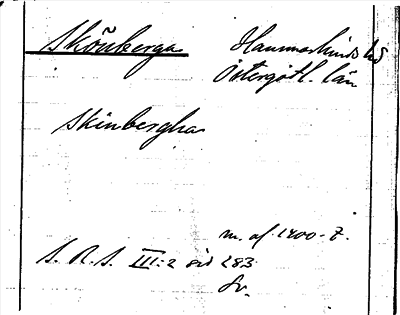 Skönberga Hammarkinds hd
Östergötl. län
Skinbergha
m. af 1400-t.
S. R. S. III:2 sid 283
Sv.